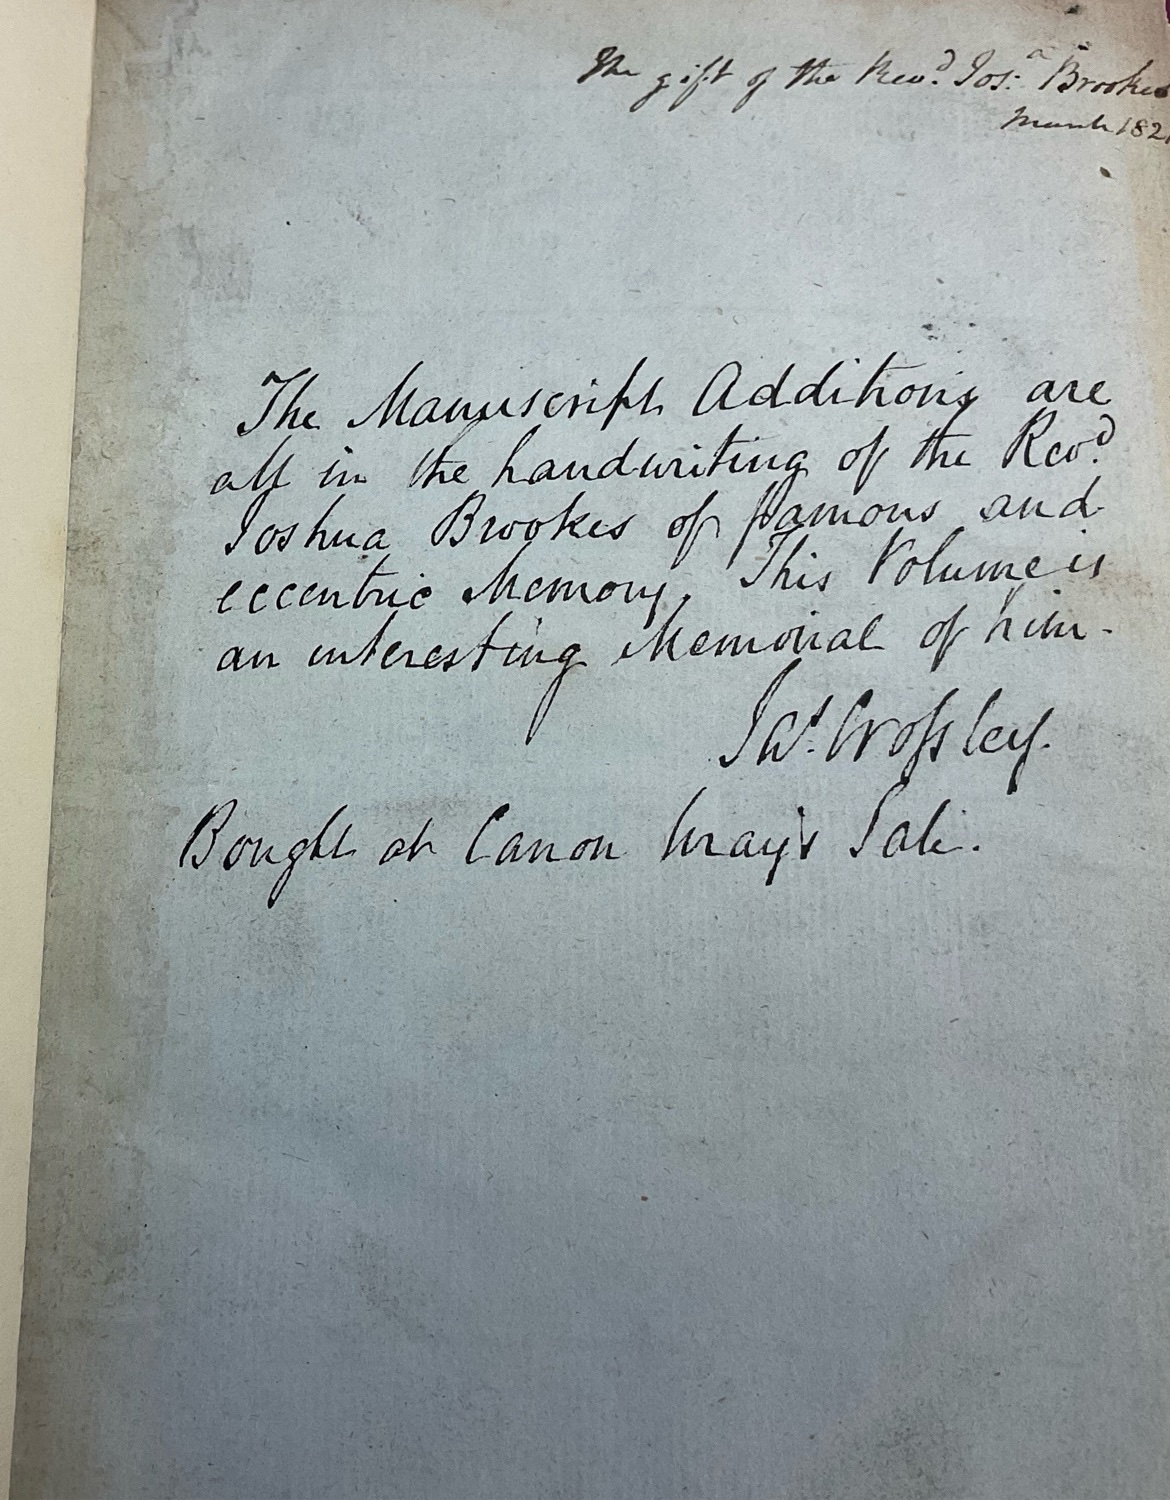 The gift of the Revd. Josa: Brookes
March 1821
The Manuscript Additions are
all in the handwriting of the Revd.
Joshua Brookes of famous and
eccentric Memory. This Volume is
an interesting Memorial of him -
Jas. Crossley.
Bought at Canon Wray's Sale.